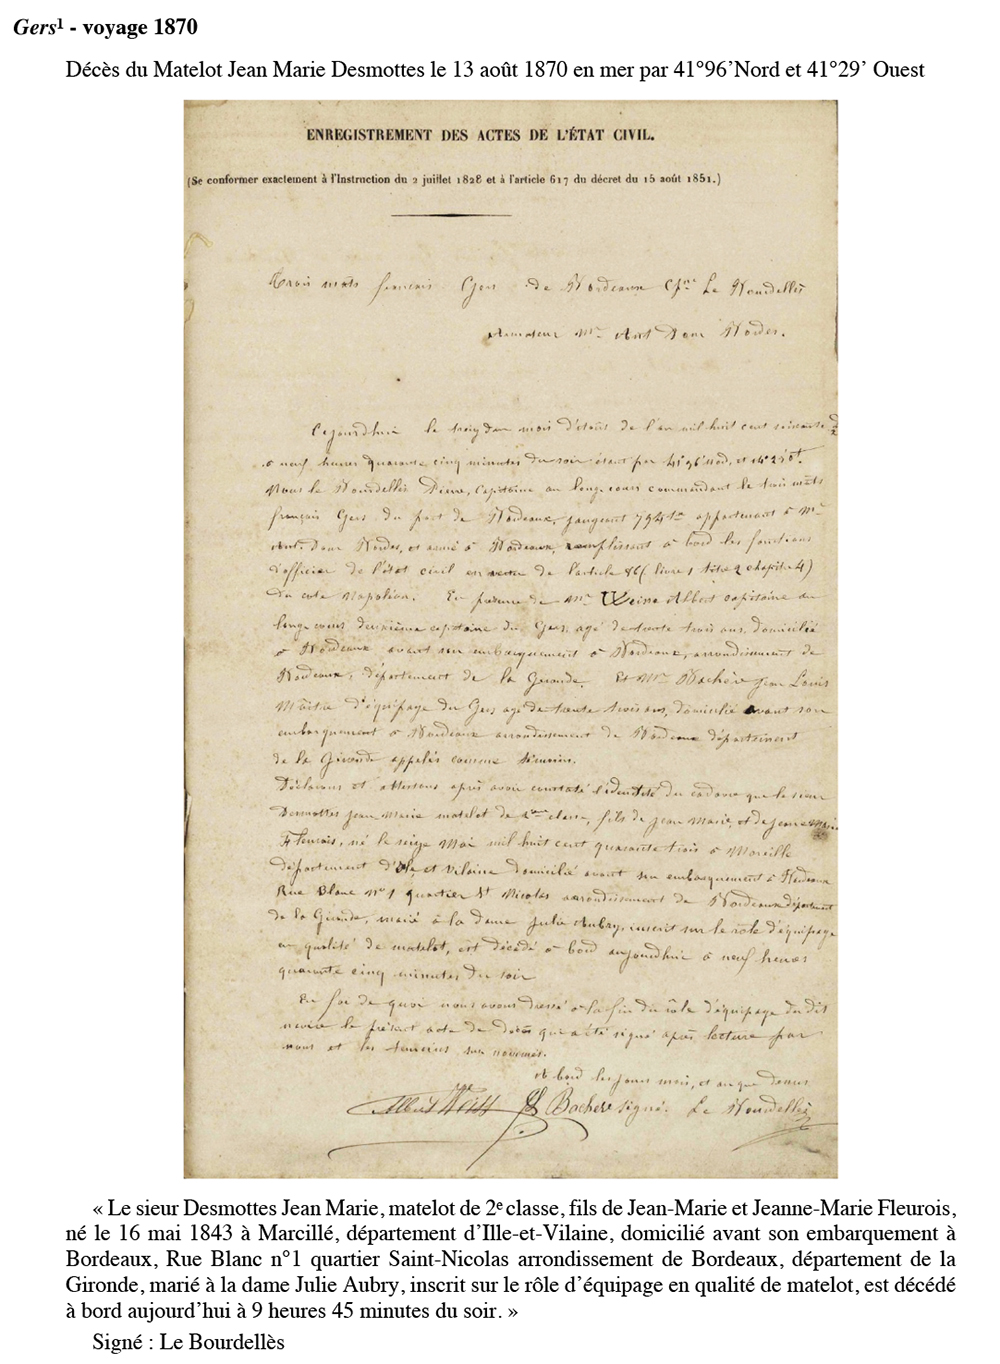 Gers¹ - voyage 1870
Décès du Matelot Jean Marie Desmottes le 13 août 1870 en mer par 41°96’Nord et 41°29’ Ouest
ENREGISTREMENT DES ACTES DE L’ÉTAT CIVIL.
(Se conformer exactement à l’Instruction du 2 juillet 1828 et à l’article 617 du décret du 15 août 1851.)
Trois mats français Gers de Bordeaux Cpne Le Bourdellès
Armateur Mr Ant Dom Bordes.
Cejourdhui le treize du mois d'août de l'an mil huit cent soixante dix
à neuf heures quarante cinq minutes du soir étant par 41°96 nord, et 41°29 ot.
Nous le Bourdellès Pierre, Capitaine au long cours commandant le trois mats
français Gers du port de Bordeaux, jaugeant 794 tx appartenant à Mr
Ant. Dom Bordes, et armé à Bordeaux, remplissant à bord les fonctions
d'officier de l'état civil en vertu de l'article 86 (livre 1 titre 2 chapitre 4)
du code Napoléon. En présence de Mr Weiss Albert capitaine au
long cours deuxième capitaine du Gers, agé de trente trois ans, domicilié
à Bordeaux avant son embarquement à Bordeaux, arrondissement de
Bordeaux, département de la Gironde. Et Mr Bachère Jean Louis
Maître d'équipage du Gers agé de trente trois ans, domicilié avant son
embarquement à Bordeaux arrondissement de Bordeaux département
de la Gironde appelés comme témoins.
Déclarons et attestons après avoir constaté l'identité du cadavre que le sieur
Desmottes Jean Marie matelot de 2me classe, fils de Jean Marie, et de Jeanne Marie
Fleurois, né le seize Mai mil huit cent quarante trois à Marcille
département d'Ille et Vilaine domicilié avant son embarquement à Bordeaux
Rue Blanc n° 1 quartier St Nicolas arrondissement de Bordeaux département
de la Gironde, marié à la dame Julie Aubry, inscrit sur le rôle d'équipage
en qualité de matelot, est décédé à bord aujourdhui à neuf heures
quarante cinq minutes du soir
En foi de quoi nous avons dressé à la fin du rôle d'équipage du dit
navire le présent acte de décès qui a été signé après lecture par
nous et les témoins sus nommés.
A bord les jours mois, et an que dessus
Albert Weiss JL Bachère signé: Le Bourdellès
« Le sieur Desmottes Jean Marie, matelot de 2e classe, fils de Jean-Marie et Jeanne-Marie Fleurois,
né le 16 mai 1843 à Marcillé, département d’Ille-et-Vilaine, domicilié avant son embarquement à
Bordeaux, Rue Blanc n°1 quartier Saint-Nicolas arrondissement de Bordeaux, département de la
Gironde, marié à la dame Julie Aubry, inscrit sur le rôle d’équipage en qualité de matelot, est décédé
à bord aujourd’hui à 9 heures 45 minutes du soir. »
Signé : Le Bourdellès